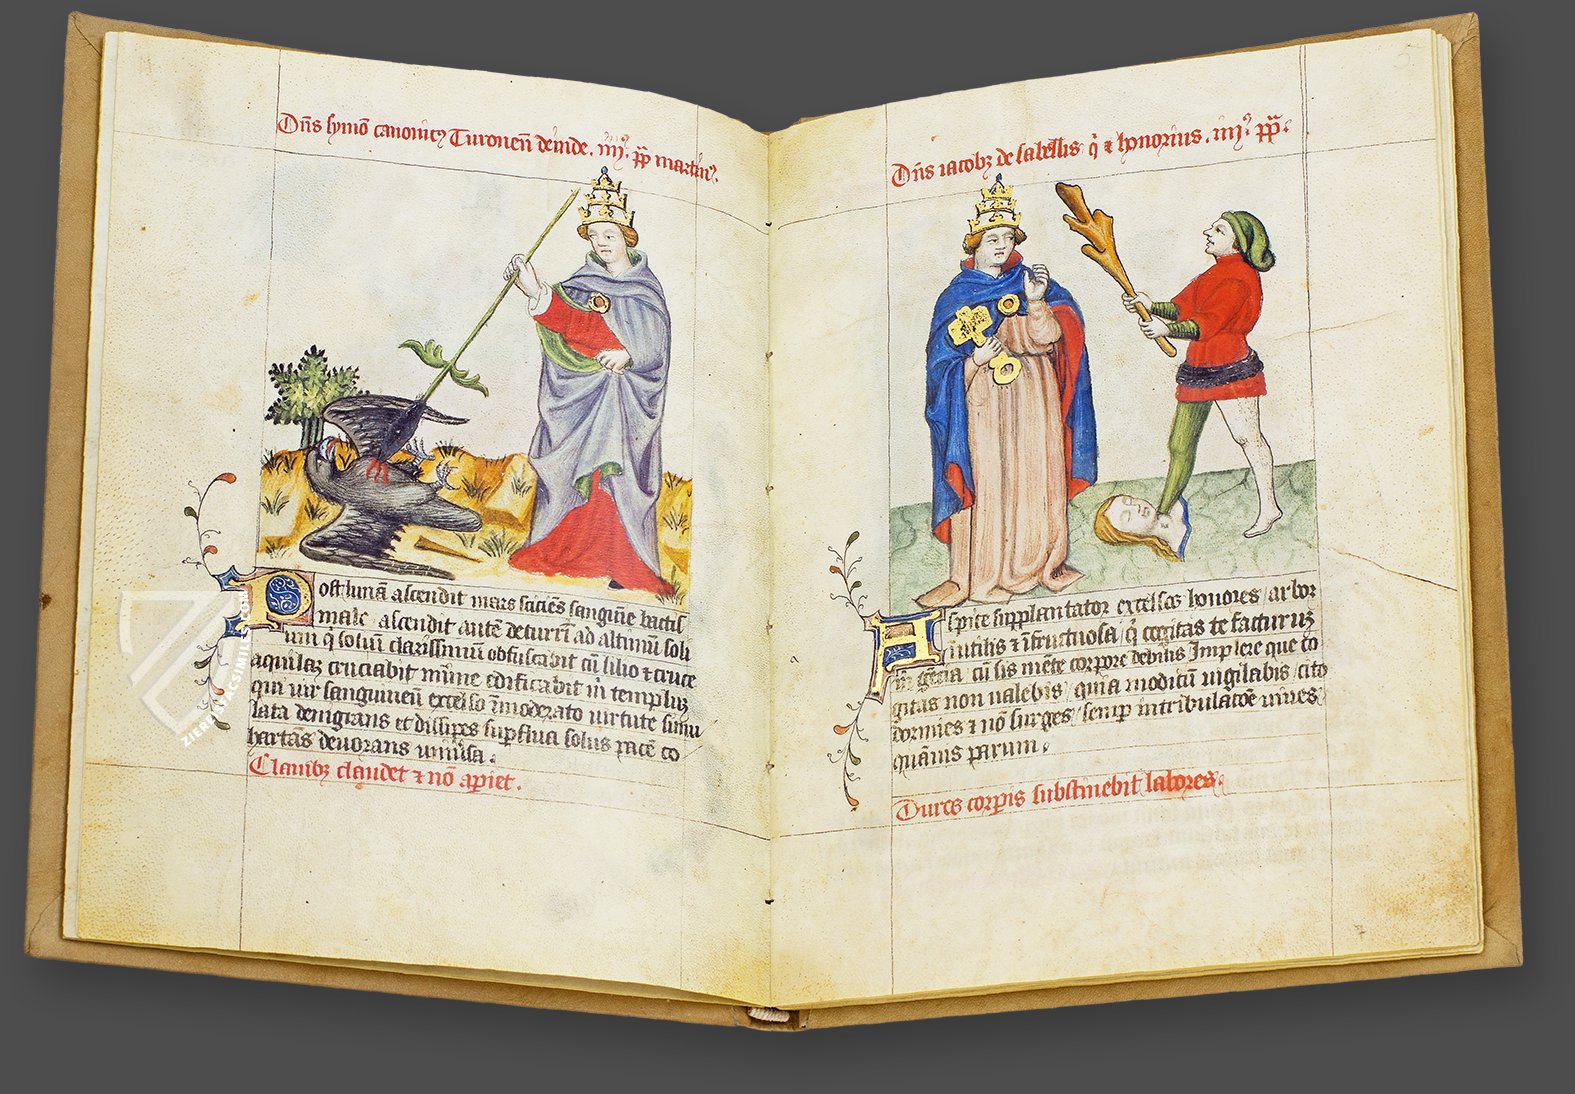 Dn̄s symoȷ̄ canonicꝰ Turonen̄ deinde . iiijꝰ . pp̄ martinꝰ.
ost lunā ascendit mars sciciēs sanguīe lactis
male . ascendit autē de turri ad altimū soli
um q̇ soluȷ̄ clarissimū obfuscabit cū lilio ⁊ cruce
aquilaȷ̄ cruciabit edificabit in templuȷ̄
qui uir sanguineū excelso īmoderato uirtute simu
lata denigrans et dissipes supflua solus pacē co
hartās deuorans uniūsa .
Clauibȝ claudet ⁊ nō apiet .
Dn̄s iacobȝ de sabellis q̇ ⁊ honorius . iiijꝰ pp̄ .
spice supplantator excelsos honores / arbor
inutilis ⁊ īfructuosa / q̇ cecitas te facturuȷ̄
cū sis mēte corpore debilis Implere que co
gitas non ualebis / quia modicū uigilabis / cito
dormies ⁊ nō surges / semp in tribulatōe uiues
quāuis parum .
Dures corpis substinebit labores .
ZIEREIS FACSIMILES.COM